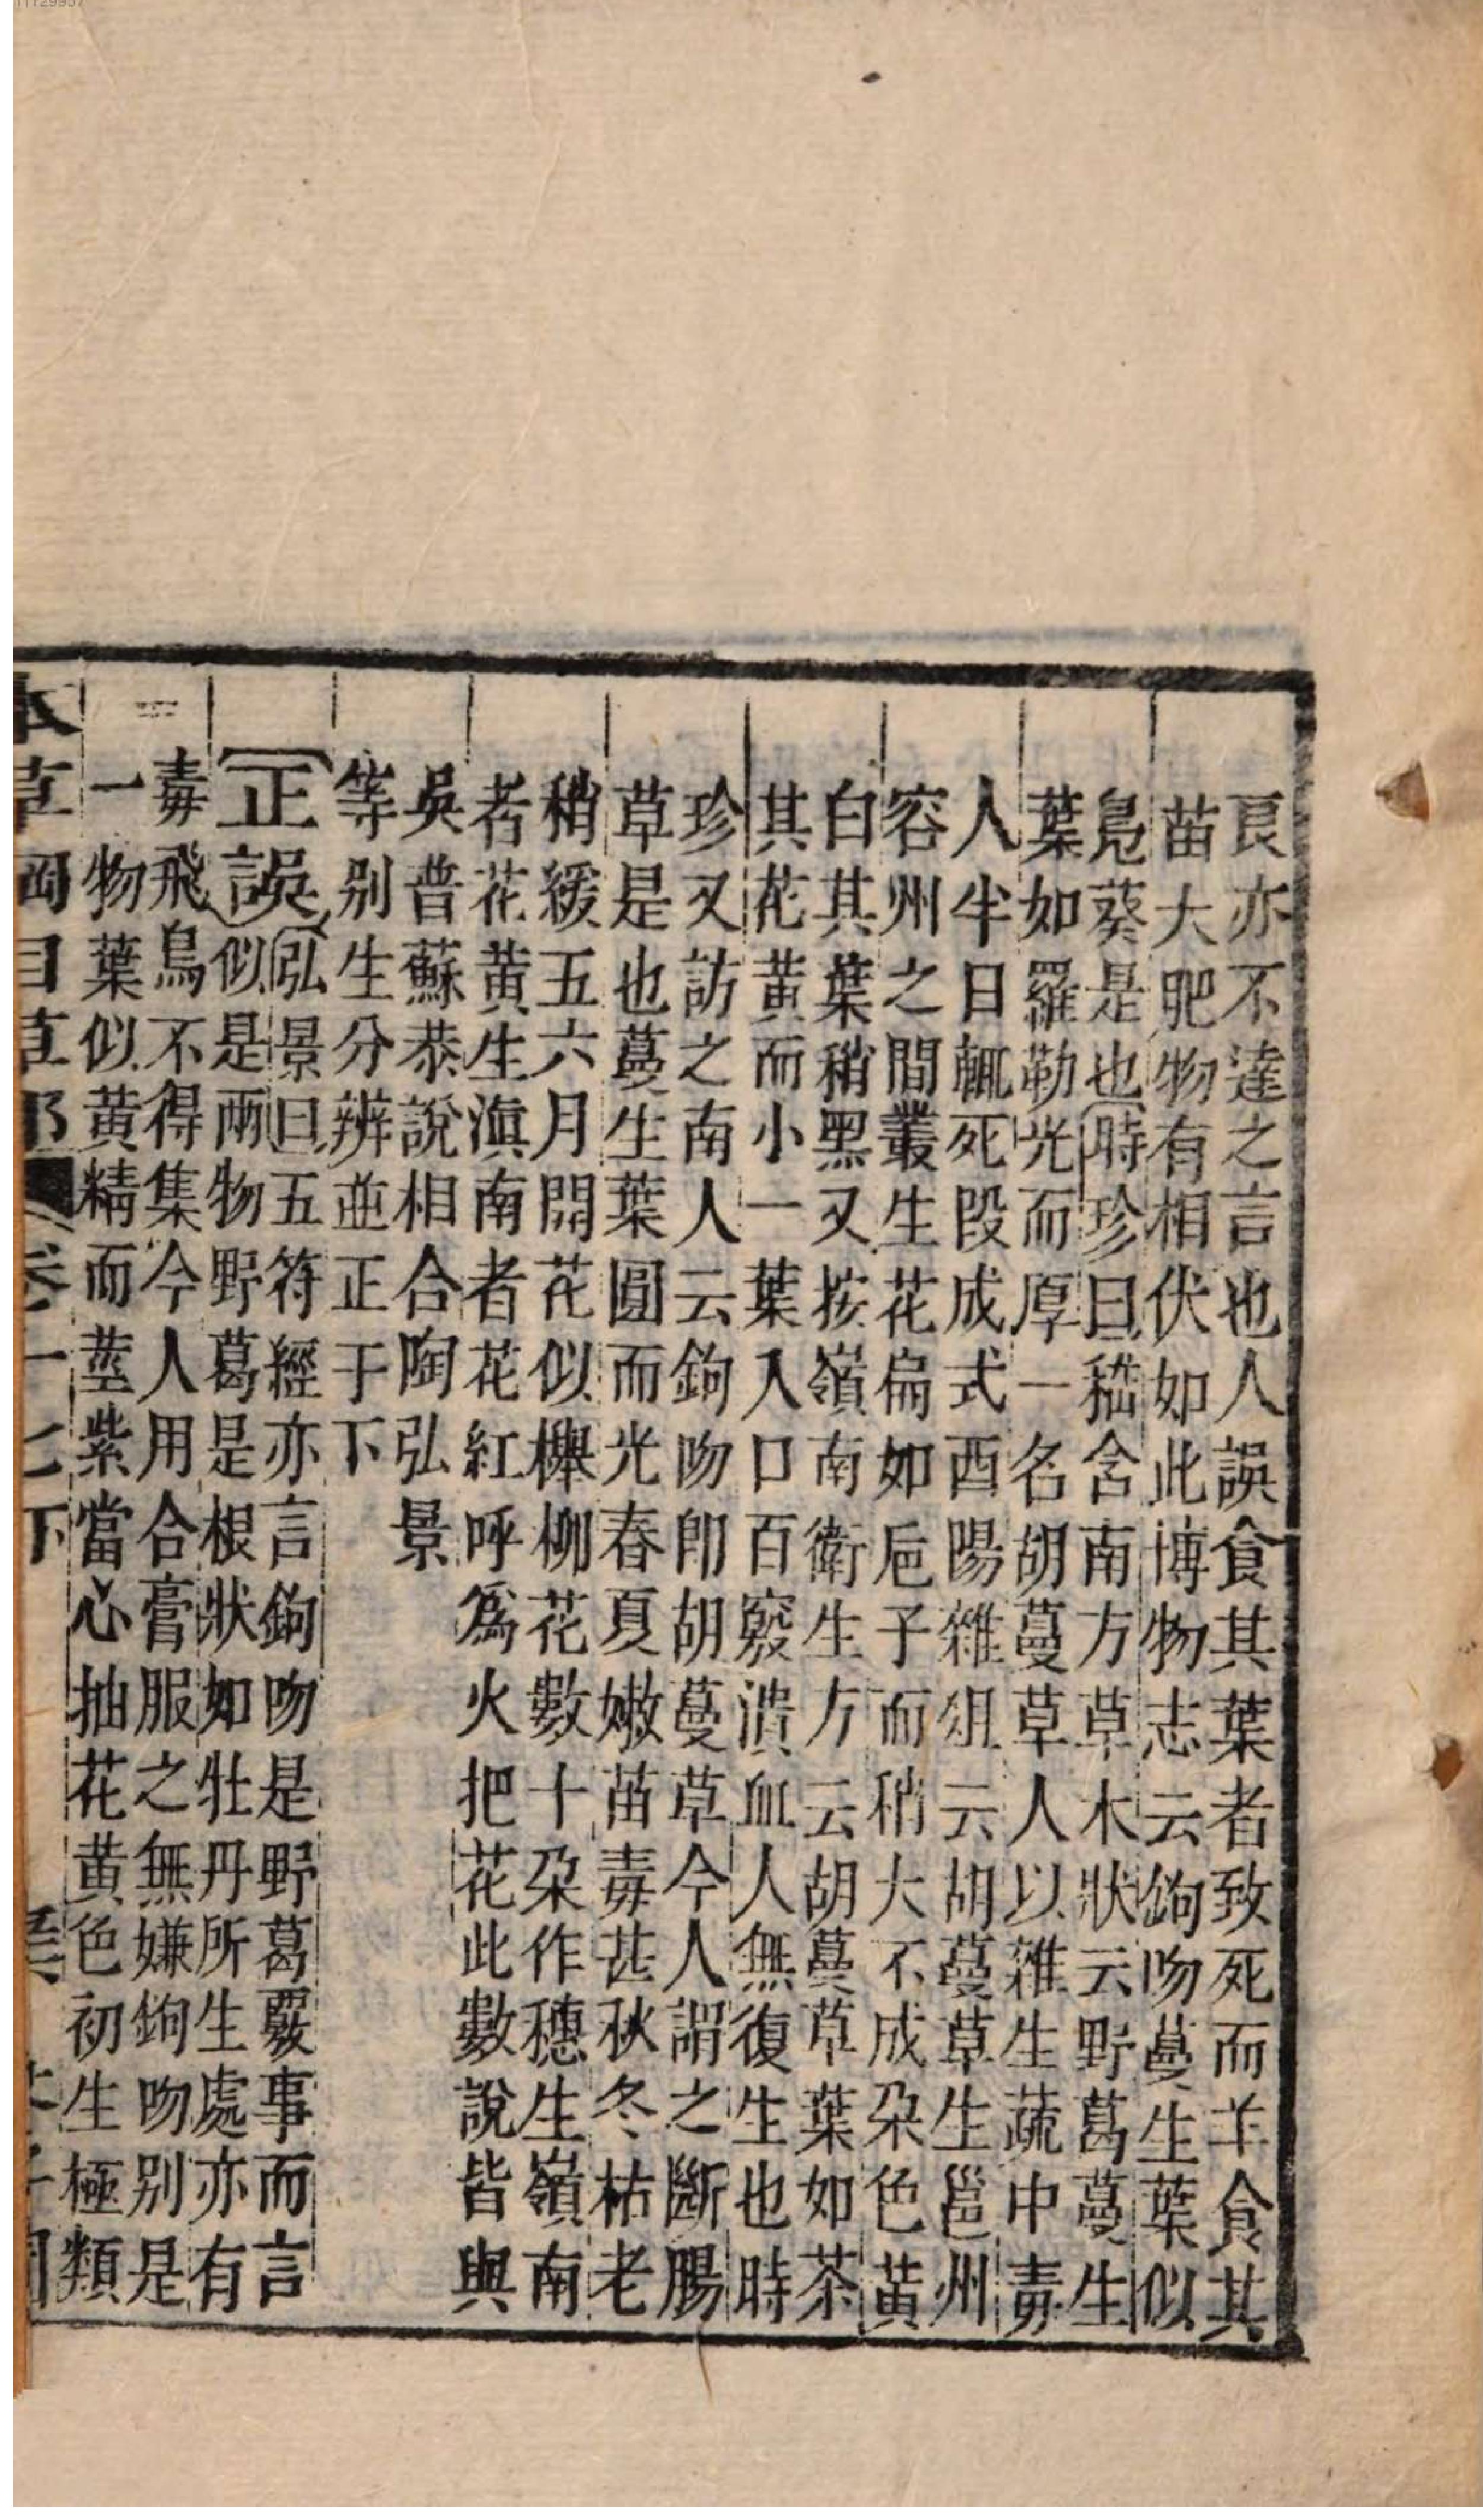 良亦不達之言也人誤食其葉者致死而羊食其
苗大肥物有相伏如此博物志云鉤吻蔓生葉似
鳧葵是也時珍曰嵇含南方草木狀云野葛蔓生
葉如羅勒光而厚一名胡蔓草人以雜生蔬中毒
人半日輒死段成式酉陽雜俎云胡蔓草生邕州
容州之間叢生花扁如巵子而稍大不成朶色黃
白其葉稍黑又按嶺南衛生方云胡蔓草葉如茶
其花黃而小一葉入口百竅潰血人無復生也時
珍又訪之南人云鉤吻即胡蔓草今人謂之斷腸
草是也蔓生葉圓而光春夏嫩苗毒甚秋冬枯老
稍緩五六月開花似櫸柳花數十朶作穗生嶺南
者花黃生滇南者花紅呼爲火把花此數說皆與
吳普蘇恭說相合陶弘景
等别生分辨並正于下
正誤弘景曰五符經亦言鉤吻是野葛覈事而言
似是兩物野葛是根狀如牡丹所生處亦有
毒飛鳥不得集今人用合膏服之無嫌鉤吻别是
一物葉似黃精而莖紫當心抽花黃色初生極類
本草綱目草部 卷十七下